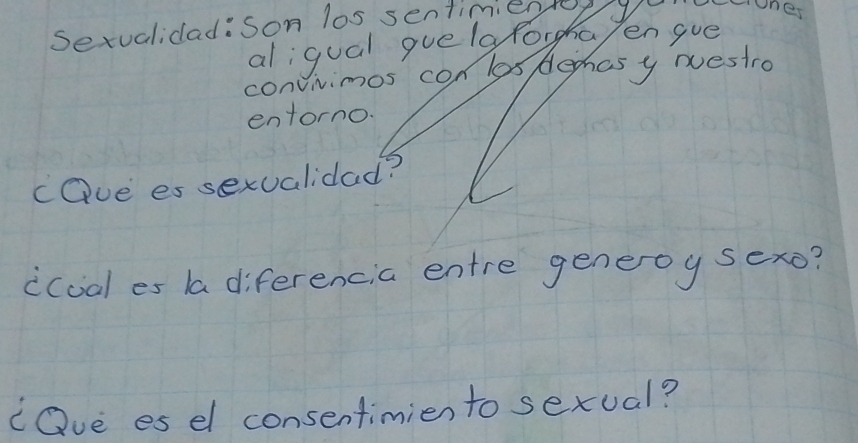 Sexualidad: Son los sentimientos y
al igual que la forma en que
convivimos con los demas y nuestro
entorno.
¿Qué es sexualidad?
¿Cuál es la diferencia entre genero y sexo?
¿Qué es el consentimiento sexual?